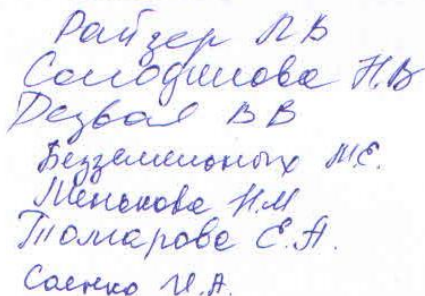 Райзер Л В
Солодилова Н.В
Дезвал В В
Безземельных М.Е.
Менькова Н.М
Томарова Е.А.
Саенко И.А.